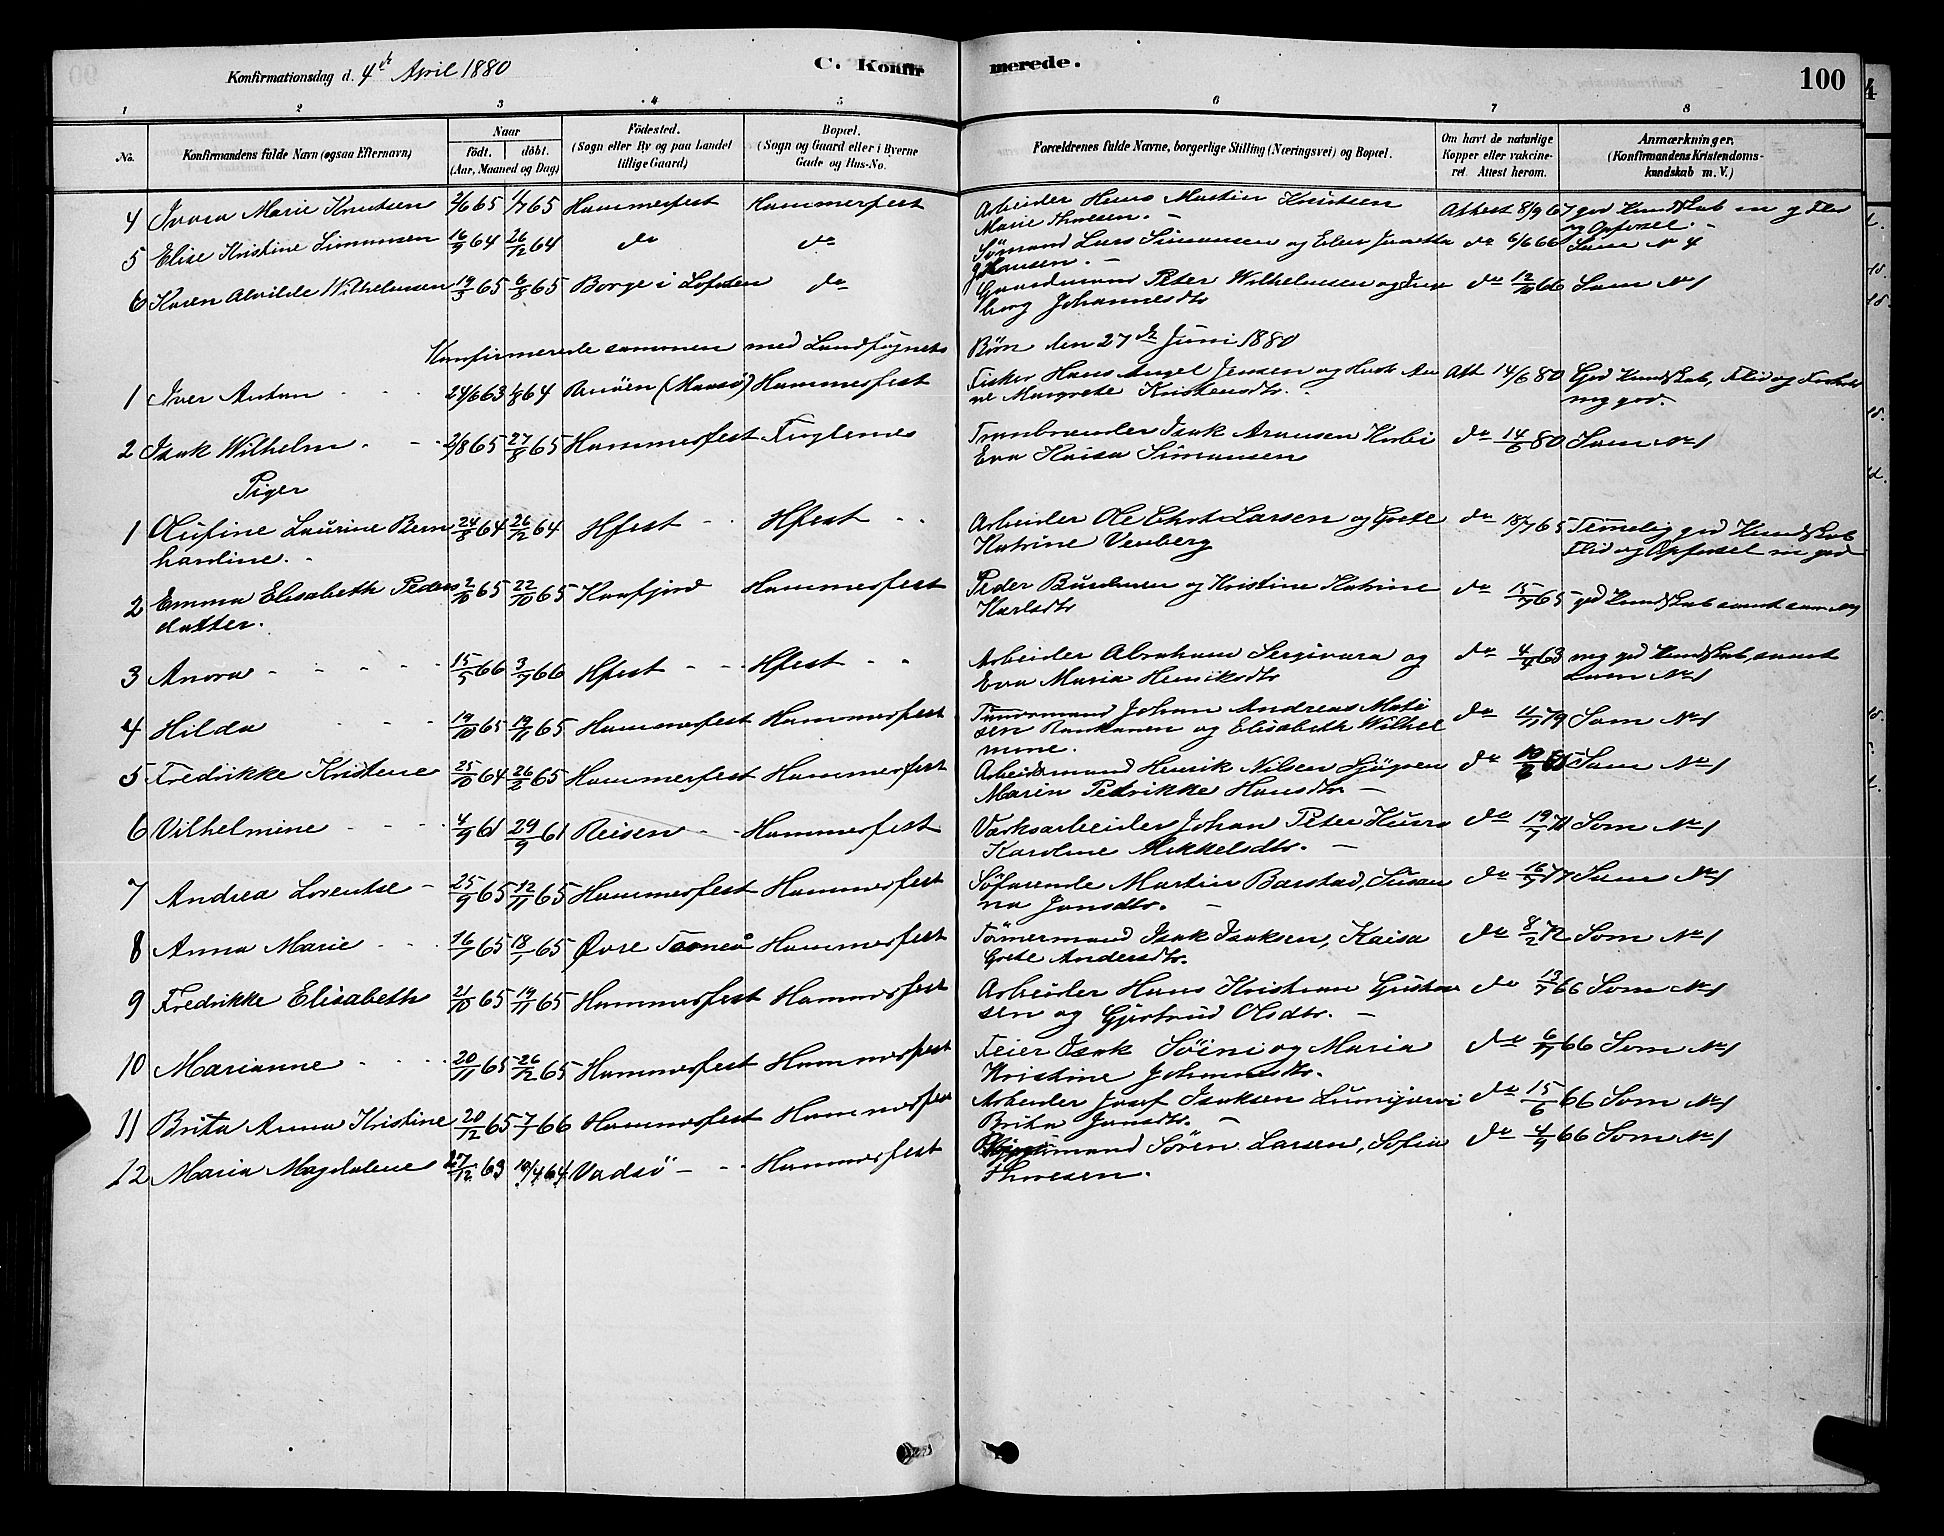 Konfirmationsdag d. 4de April 1880 C. Konfirmerede. 100
1 2 3 4 5 6 7 8
No. Konfirmandens fulde Navn (ogsaa Efternavn) Naar födt. döbt. (Aar, Maaned og Dag) Födested. (Sogn eller By og paa Landet tillige Gaard) Bopæl. (Sogn og Gaard eller i Byerne Gade og Hus-No. Forældrenes fulde Navne, borgerlige Stilling (Næringsvei) og Bopæl. Om havt de naturlige Kopper eller vakcineret. Attest herom. Anmærkninger. (Konfirmandens Kristendomskundskab m. V.)
4 Marie Knutsen 2/6 65 1/7 65 Hammerfest Hammerfest Arbeider Hans Martin Knutsen Attest 8/9 67 god Kundskab m g Flid
Marie Thoresen. og Opførsel.
5 Elise Kristine Simonsen 16/9 64 26/12 64 do do Sømand Lars Simonsen og Elen do 6/6 66 Som No 4
Johansen.
6 Karen Alvilde Wilhelmsen 19/3 65 6/8 65 Borge i Lofoten do Gaardmand Peter Wilhelmsen og do 12/10 66 Som No 1
borg Johannesdtr
Konfirmerede sammen med Landsognets Børn den 27de Juni 1880
1 Iver Anton 24/6 63 1/8 64 (Maasö) Hammerfest Fisker Hans Angel Jensen og Hust. An Att 14/6 80 God Kundskab, Flid og Forhold
ne Margrete Kristensdtr. meg god.
2 Isak Wilhelm 2/8 65 27/8 65 Hammerfest Fuglenes Tranbrænder Isak Aronsen do 14/6 80 Som No 1
Eva Kaisa Simonsen
Piger
1 Olufine Laurine Bern 24/8 64 26/12 64 Hfest Hfest Arbeider Ole Chr. Larsen og Grete do 18/7 65 Temmelig god Kundskab
hardine. Katrine Venberg Flid og Opførsel m god
2 Emma Elisabeth Peders 2/10 65 22/10 65 Kaafjord Hammerfest Peder og Kristine Katrine do 15/7 65 god Kundskab samt som No 1
datter. Karlsdtr
3 Anora 15/5 66 3/7 66 Hfest Hfest Arbeider Abraham Sergivara og do 4/4 63 meg god Kundskab, samt
Eva Maria Henriksdtr Som No 1
4 Hilda 19/10 65 19/11 65 Hammerfest Hammerfest Tømmermand Johan Andreas Mati do 4/7 79 Som No 1
sen Rankanen og Elisabeth Wilhel
mine.
5 Fredrikke Kristene 25/10 64 26/2 65 Hammerfest Hammerfest Arbeidsmand Henrik Nilsen Sjøgren do Som No 1
Maren Pedrikke Hansdtr.
6 Vilhelmine 4/9 61 29/9 61 Reisen Hammerfest Værksarbeider Johan Peter do 19/7 71 Som No 1
Karoline Mikkelsdtr.
7 Andrea Lorentse 25/9 65 12/11 65 Hammerfest Hammerfest Søfarende Martin Barstad, Susan do 16/7 77 Som No 1
na Jonsdtr.
8 Anna Marie 16/1 65 18/1 65 Øvre Torneå Hammerfest Tømermand Isak Isaksen, Kaisa do 8/2 72 Som No 1
Grete Andersdtr.
9 Fredrikke Elisabeth 21/10 65 19/11 65 Hammerfest Hammerfest Arbeider Hans Kristian Gustav do 13/7 66 Som No 1
sen og Gjertrud Olsdtr.
10 Marianne 20/11 65 26/12 65 Hammerfest Hammerfest Feier Isak Söini og Maria do 6/7 66 Som No 1
Kristine Johannesdtr.
11 Brita Anna Kristine 20/12 65 7/1 66 Hammerfest Hammerfest Arbeider Josef Isaksen Lumijarvi do 15/6 66 Som No 1
Brita Jonsdtr.
12 Maria Magdalene 27/12 63 10/4 64 Vadsö Hammerfest Sören Larsen, Sofia do 4/9 66 Som No 1
Thoresen.